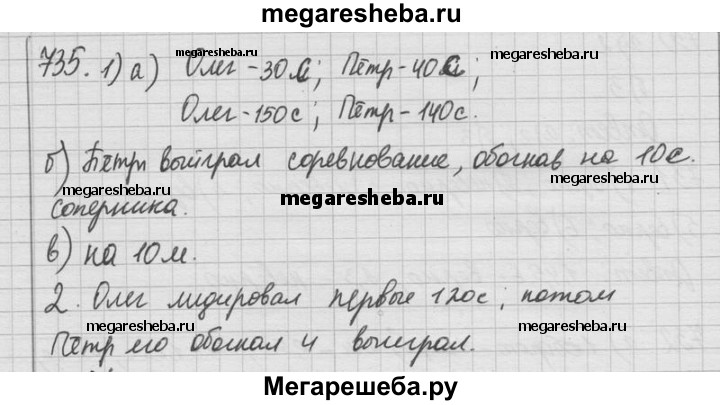 megaresheba.ru
735. 1) а) Олег - 30 с; Пётр - 40 с;
megaresheba.ru
megaresheba.ru
Олег - 150 с; Пётр - 140 с.
б) Пётр выиграл соревнование, обогнав на 10 с.
megaresheba.ru
megaresheba.ru
megaresheba.ru
соперника.
в) на 10 м.
2. Олег лидировал первые 120 с; потом
megaresheba.ru
megaresheba.ru
Пётр его обогнал и выиграл.
Мегарешеба.ру